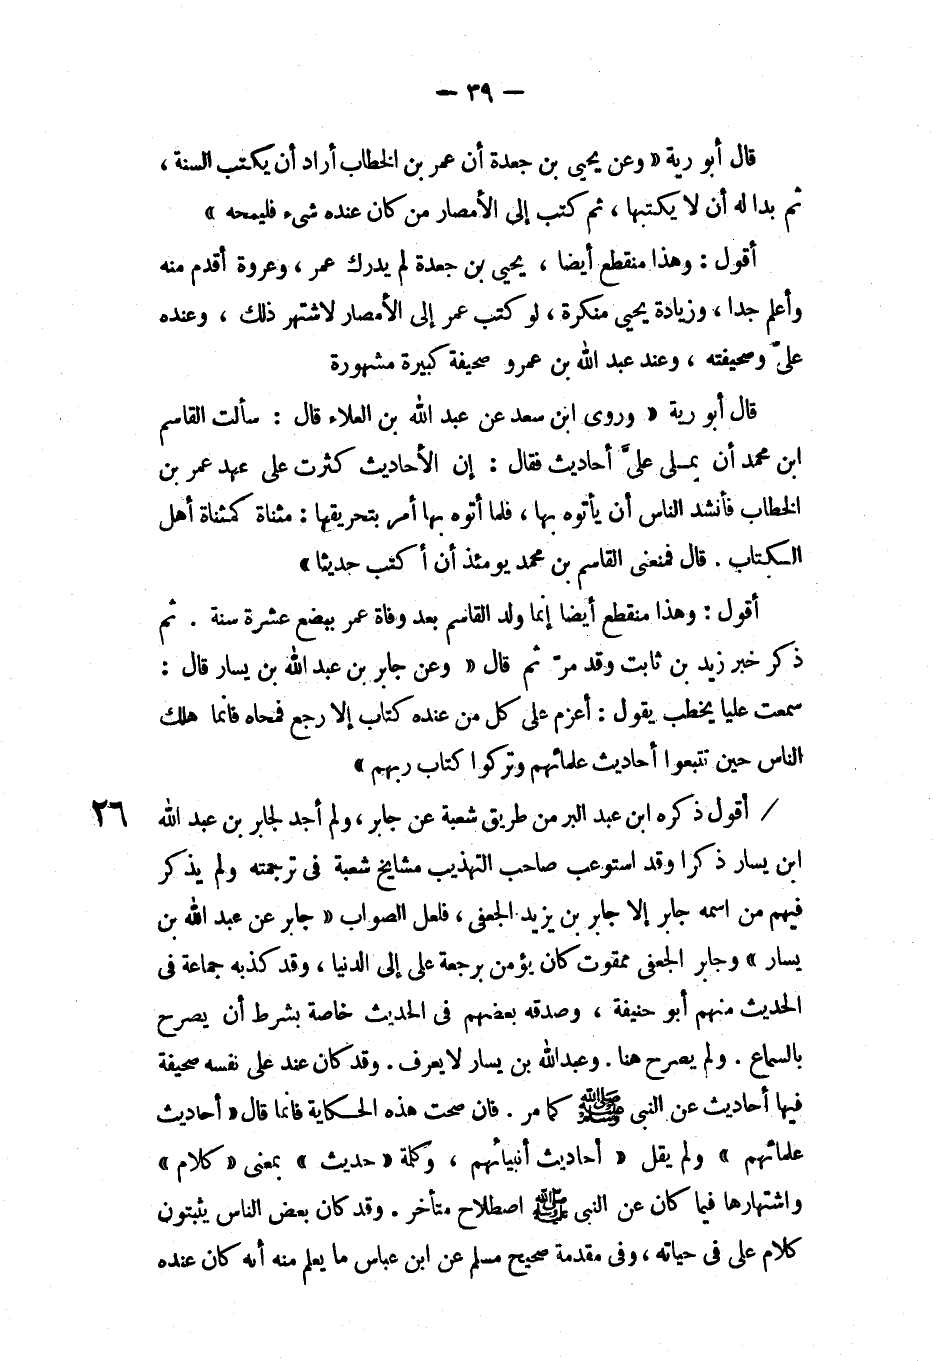 — ٣٩ —
قال أبو رية « وعن يحيى بن جعدة أن عمر بن الخطاب أراد أن يكتب السنة ،
ثم بدا له أن لا يكتبها ، ثم كتب إلى الأمصار من كان عنده شىء فليمحه »
أقول : وهذا منقطع أيضا ، يحيى بن جعدة لم يدرك عمر ، وعروة أقدم منه
وأعلم جدا ، وزيادة يحيى منكرة ، لو كتب عمر إلى الأمصار لاشتهر ذلك ، وعنده
علىّ وصحيفته ، وعند عبد الله بن عمرو صحيفة كبيرة مشهورة
قال أبو رية « وروى ابن سعد عن عبد الله بن العلاء قال : سألت القاسم
ابن محمد أن يملى علىَّ أحاديث فقال : إن الأحاديث كثرت على عهد عمر بن
الخطاب فأنشد الناس أن يأتوه بها ، فلما أتوه بها أمر بتحريقها : مثناة كمثناة أهل
الكتاب . قال فمنعنى القاسم بن محمد يومئذ أن أكتب حديثا »
أقول : وهذا منقطع أيضا إنما ولد القاسم بعد وفاة عمر ببضع عشرة سنة . ثم
ذكر خبر زيد بن ثابت وقد مرّ ثم قال « وعن جابر بن عبد الله بن يسار قال :
سمعت عليا يخطب يقول : أعزم على كل من عنده كتاب إلا رجع فمحاه فانما هلك
الناس حين تتبعوا أحاديث علمائهم وتركوا كتاب ربهم »
/ أقول ذكره ابن عبد البر من طريق شعبة عن جابر ، ولم أجد لجابر بن عبد الله ٢٦
ابن يسار ذكرا وقد استوعب صاحب التهذيب مشايخ شعبة فى ترجمته ولم يذكر
فيهم من اسمه جابر إلا جابر بن يزيد الجعفى ، فلعل الصواب « جابر عن عبد الله بن
يسار » وجابر الجعفى ممقوت كان يؤمن برجعة على إلى الدنيا ، وقد كذبه جماعة فى
الحديث منهم أبو حنيفة ، وصدقه بعضهم فى الحديث خاصة بشرط أن يصرح
بالسماع . ولم يصرح هنا . وعبد الله بن يسار لا يعرف . وقد كان عند على نفسه صحيفة
فيها أحاديث عن النبى ﷺ كما مر . فان صحت هذه الحكاية فانما قال « أحاديث
علمائهم » ولم يقل « أحاديث أنبيائهم ، وكلمة « حديث » بمعنى « كلام »
واشتهارها فيما كان عن النبى ﷺ اصطلاح متأخر . وقد كان بعض الناس يثبتون
كلام على فى حياته ، وفى مقدمة صحيح مسلم عن ابن عباس ما يعلم منه أنه كان عنده